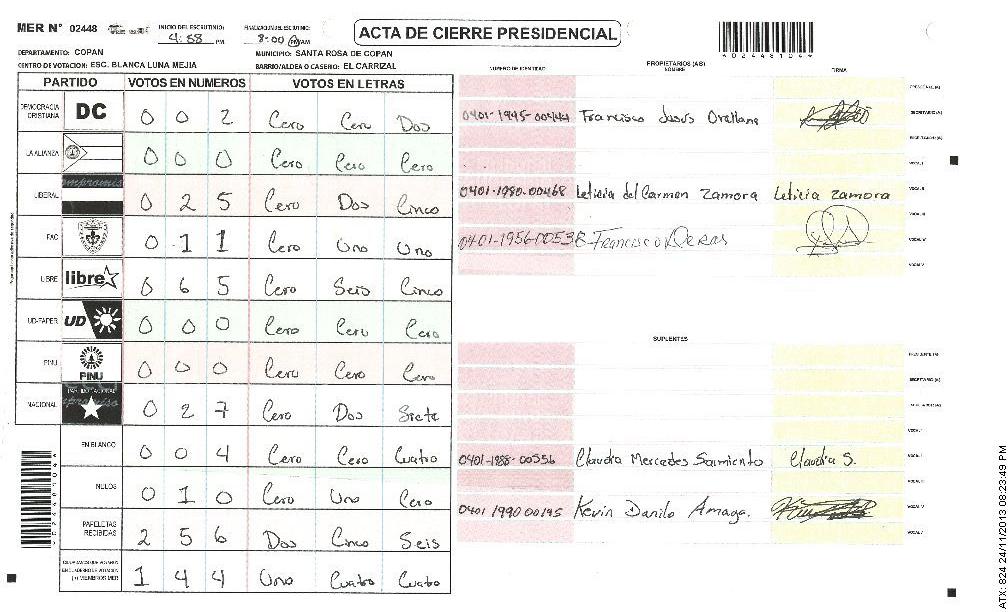 MER N° 02448 INICIO DEL ESCRUTINIO: 4:58 PM FINALIZACION DEL ESCRUTINIO: 8:00 PM/AM ACTA DE CIERRE PRESIDENCIAL
DEPARTAMENTO: COPAN MUNICIPIO: SANTA ROSA DE COPAN
CENTRO DE VOTACION: ESC. BLANCA LUNA MEJIA BARRIO/ALDEA O CASERIO: EL CARRIZAL
PARTIDO VOTOS EN NUMEROS VOTOS EN LETRAS
DEMOCRACIA CRISTIANA DC 0 0 2 Cero Cero Dos
LA ALIANZA 0 0 0 Cero Cero Cero
LIBERAL 0 2 5 Cero Dos Cinco
FAC 0 1 1 Cero Uno Uno
LIBRE libre 0 6 5 Cero Seis Cinco
UD-FAPER UD 0 0 0 Cero Cero Cero
PINU PINU 0 0 0 Cero Cero Cero
NACIONAL PARTIDO NACIONAL 0 2 7 Cero Dos Siete
EN BLANCO 0 0 4 Cero Cero Cuatro
NULOS 0 1 0 Cero Uno Cero
PAPELETAS RECIBIDAS 2 5 6 Dos Cinco Seis
CIUDADANOS QUE VOTARON EN CUADERNO DE VOTACION (+) MIEMBROS MER 1 4 4 Uno Cuatro Cuatro
PROPIETARIOS (AS)
NUMERO DE IDENTIDAD NOMBRE FIRMA
PRESIDENTE (A)
0401-1945-00444 Francisco Jesus Orellana SECRETARIO (A)
ESCRUTADOR (A)
VOCAL I
0401-1980-00468 Leticia del Carmen Zamora Leticia Zamora VOCAL II
VOCAL III
0401-1956-00538 Francisco Deras VOCAL IV
VOCAL V
SUPLENTES
PRESIDENTE (A)
SECRETARIO (A)
ESCRUTADOR (A)
VOCAL I
0401-1988-00556 Claudia Mercedes Sarmiento Claudia S. VOCAL II
VOCAL III
0401 1990 00195 Kevin Danilo Amaga. VOCAL IV
VOCAL V
ATX: 824 24/11/2013 08:23:49 PM